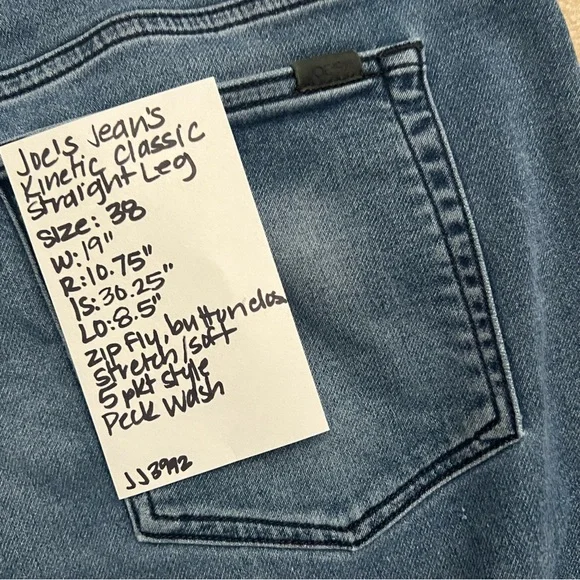 JOE'S
Joe's Jean's
Kinetic Classic
Straight Leg
Size: 38
W: 19"
R: 10.75"
IS: 30.25"
LO: 8.5"
zip fly, button clos
stretch/soft
5 pkt style
Peck Wash
JJ3992